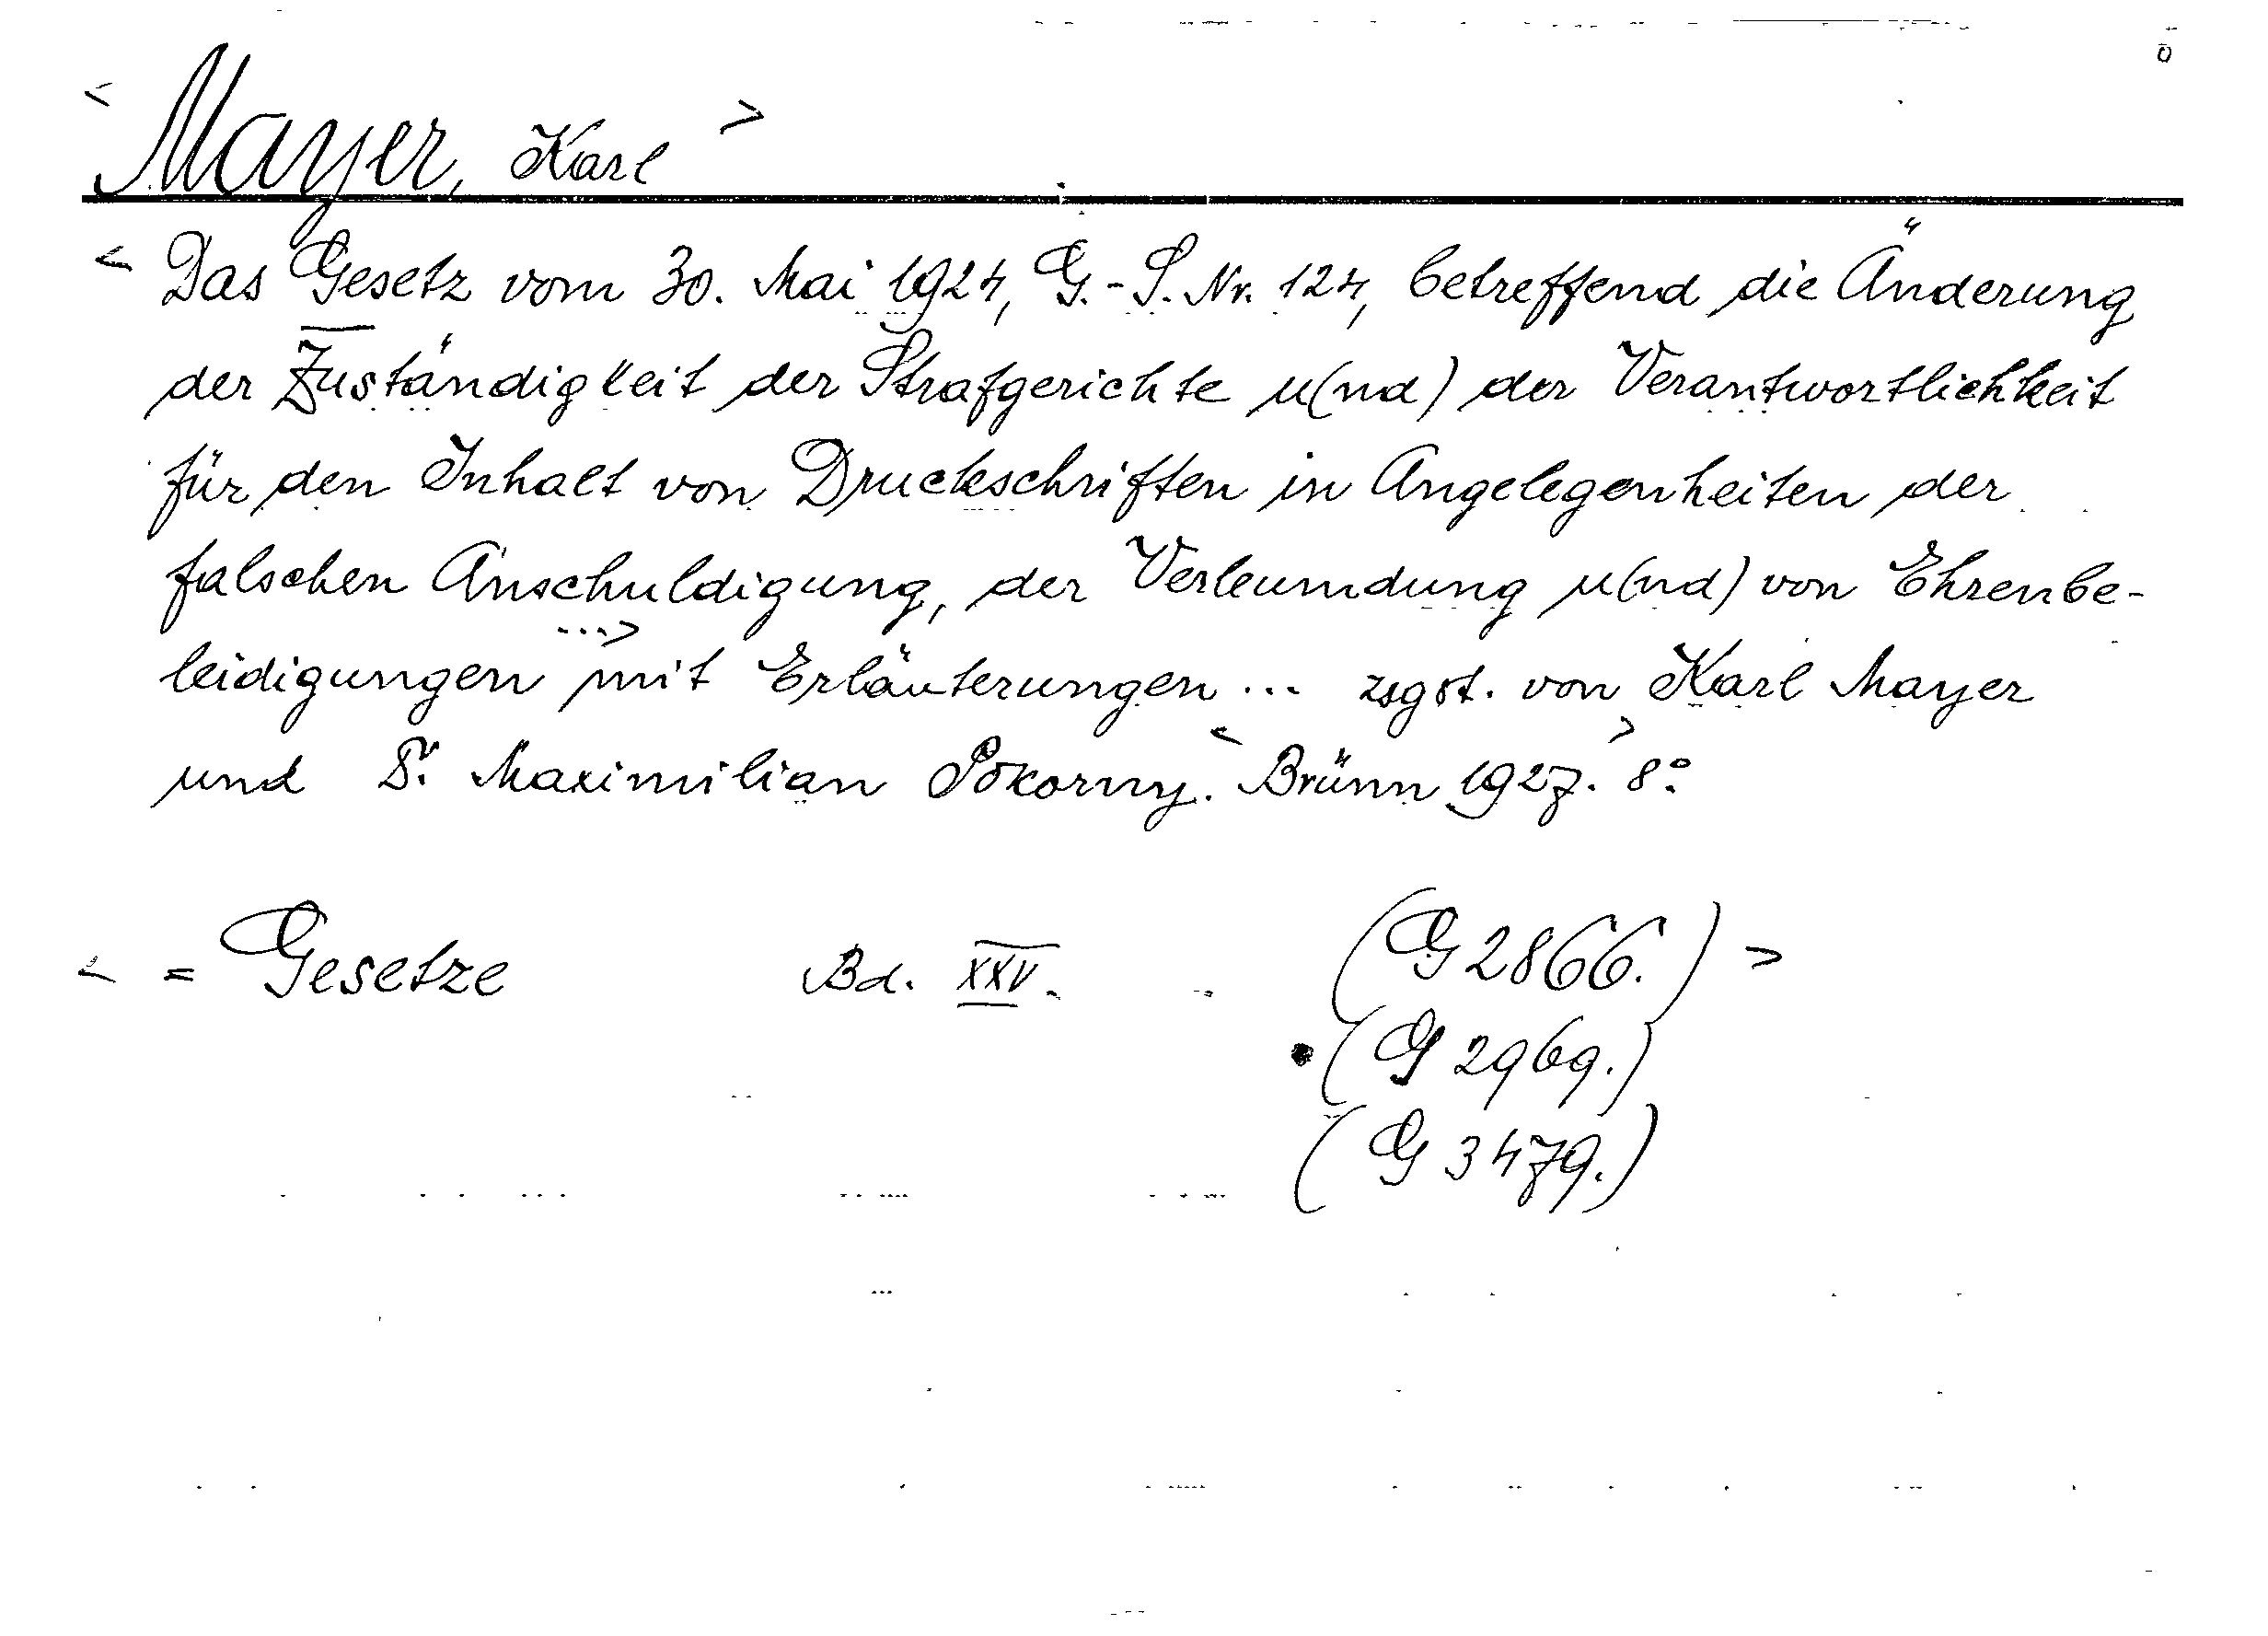 < Mayer, Karl >
< Das Gesetz vom 30. Mai 1924, G.-S. Nr. 124, betreffend die Änderung
der Zuständigkeit der Strafgerichte u(nd) der Verantwortlichkeit
für den Inhalt von Druckschriften in Angelegenheiten der
falschen Anschuldigung, der Verleumdung u(nd) von Ehrenbe-
leidigungen ...> mit Erläuterungen ... zsgst. von Karl Mayer
und Dr. Maximilian Pokorny. < Brünn 1927. > 8°.
< = Gesetze Bd. XXV. (G 2866.) >
(G 2969.)
(G 3479.)